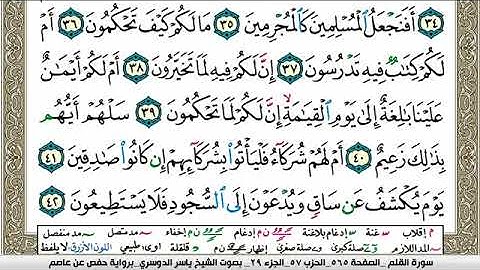 ٣٤ أَفَنَجْعَلُ الْمُسْلِمِينَ كَالْمُجْرِمِينَ ٣٥ مَا لَكُمْ كَيْفَ تَحْكُمُونَ ٣٦ أَمْ
لَكُمْ كِتَابٌ فِيهِ تَدْرُسُونَ ٣٧ إِنَّ لَكُمْ فِيهِ لَمَا تَخَيَّرُونَ ٣٨ أَمْ لَكُمْ أَيْمَانٌ
عَلَيْنَا بَالِغَةٌ إِلَى يَوْمِ الْقِيَامَةِ إِنَّ لَكُمْ لَمَا تَحْكُمُونَ ٣٩ سَلْهُمْ أَيُّهُم
بِذَلِكَ زَعِيمٌ ٤٠ أَمْ لَهُمْ شُرَكَاءُ فَلْيَأْتُوا بِشُرَكَائِهِمْ إِن كَانُوا صَادِقِينَ ٤١
يَوْمَ يُكْشَفُ عَن سَاقٍ وَيُدْعَوْنَ إِلَى السُّجُودِ فَلَا يَسْتَطِيعُونَ ٤٢
م إقلاب غنة إدغام بلاغنة ن م إخفاء مد متصل مد منفصل
المد اللازم وصلة كبرى وصلة صغرى إظهار ن م قلقلة اوى طبيعي اللون الأزرق لا يلفظ
سورة القلم _الصفحة ٥٦٥_ الحزب ٥٧_الجزء ٢٩_ بصوت الشيخ ياسر الدوسري_برواية حفص عن عاصم